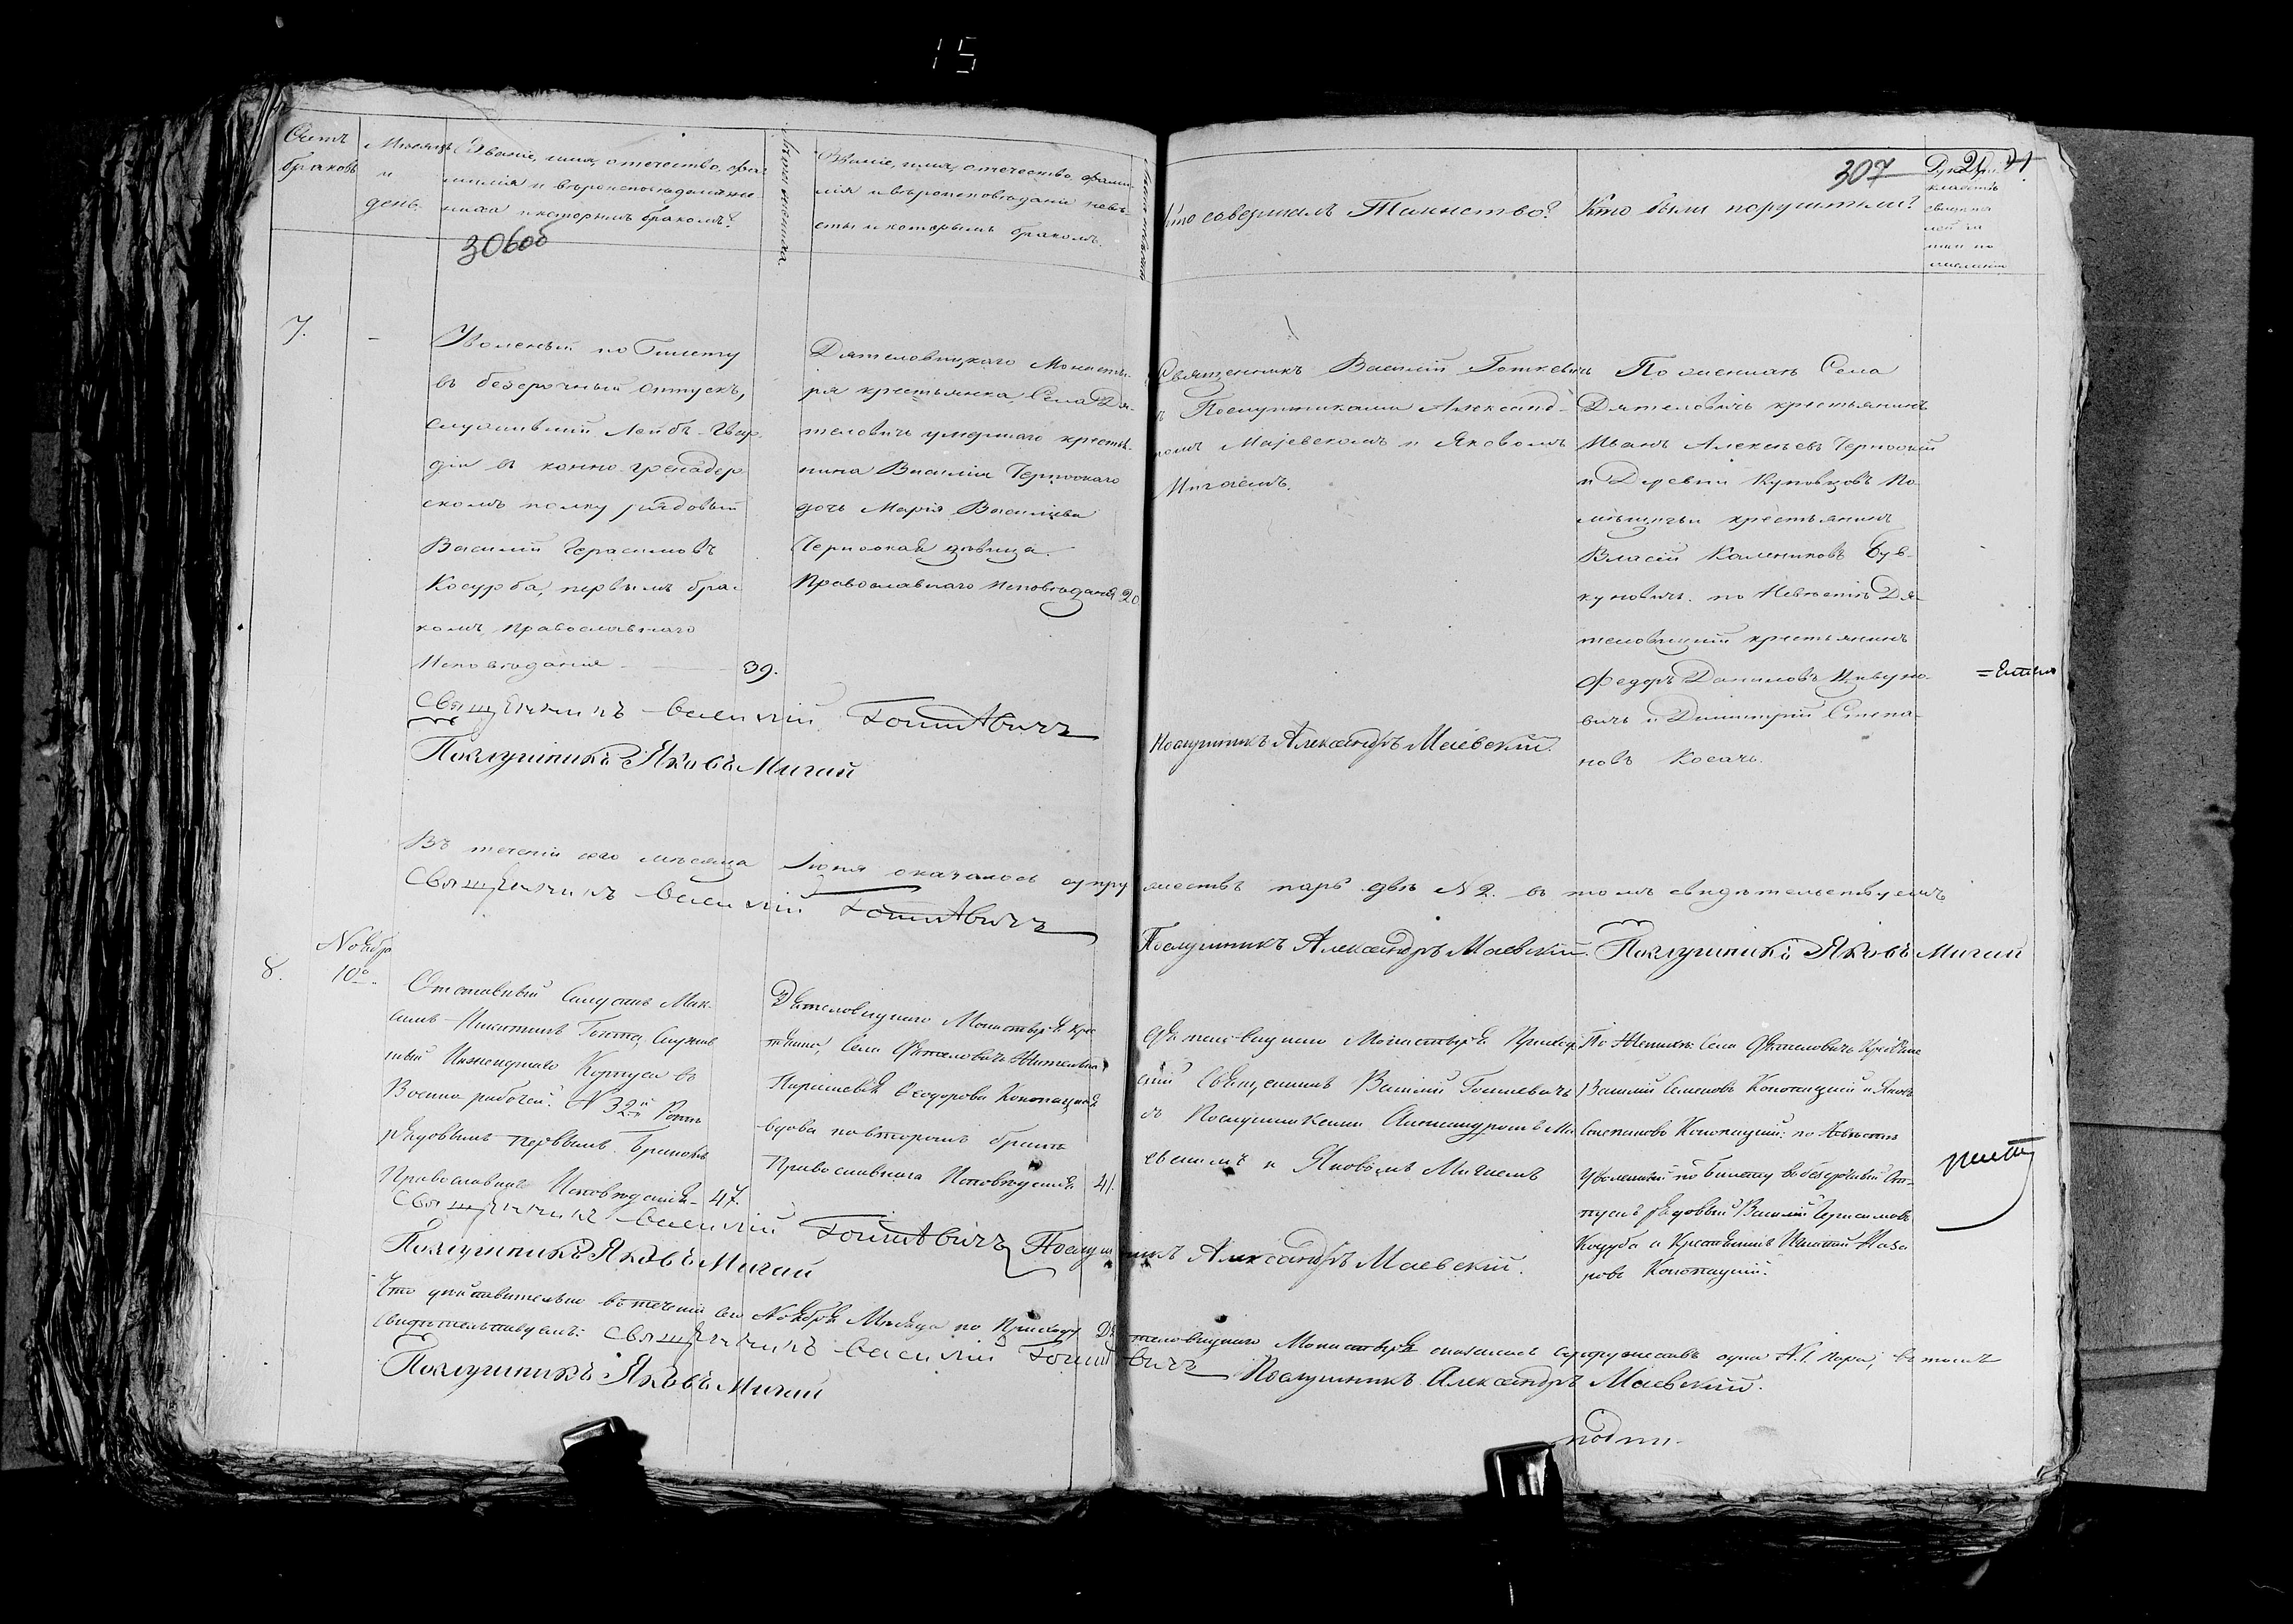 15
Счетъ
браковъ
Мѣсяцъ
и
день.
Званіе, имя, отечество, фа
милія и вѣроисповѣданіе же
ниха и которымъ бракомъ?
306об
Лѣта жениха.
Званіе, имя, отечество, фами
лія и вѣроисповѣданіе невѣ
сты и которымъ бракомъ.
Кто совершалъ Таинство?
307
Кто были поручители?
21
7.
Уволеный по билету
въ безсрочный отпускъ,
служившій Лейбъ-Гвар
діи въ конно-гренадер
скомъ полку рядовый
Василій Герасимовъ
Косурба, первымъ бра-
комъ, православнаго
Исповѣданія 39.
Дятеловицкаго Монасты-
ря крестьянка, Села Дя-
теловичъ умершаго кресть-
янина Василія Терпоокаго
дочь Марія Василіева
дѣвица.
Православнаго Исповѣданія 20.
Священникъ Василій Готкевичъ
съ Послушниками Александ-
ромъ Маjевскомъ и Яковомъ
Мигаемъ.
По женихѣ Села
Дятеловичъ крестьянинъ
Иванъ Алексѣевъ
и Деревни Куповцовъ По
мѣщичьи крестьянинъ
Власій Калениковъ Був-
куновичъ. по Невѣстѣ Дя-
теловицкій крестьянинъ
Федоръ Даниловъ Цивуно-
вичъ и Димитрій Степа-
новъ Косачъ.
Священникъ Василій Гошкевичъ
Послушникъ Яковъ Мигай
Послушникъ Александръ Маевскій.
Въ теченіи сего мѣсяца Іюня оказалось супружествъ паръ двѣ № 2. въ томъ свидѣтельствуемъ
Священникъ Василій Гошкевичъ
Послушникъ Александръ Маевскій. Послушникъ Яковъ Мигай
8.
Ноября
10го.
Отставный Солдатъ Мак-
симъ Никитинъ Служив
шій Инженернаго Корпуса въ
Военно рабочей. № 32й Роты
рядовымъ первымъ Бракомъ
Православнаго Исповѣданія- 47.
Дятеловицкаго Монастыря крес
тьянка, Села Дятеловичъ Жительни
Параскевія Ѳеодорова Конопацкая
вдова повторымъ бракомъ
Православнаго Исповѣданія 41.
Дятеловицкаго Монастыря Приход
скій Священникъ Василій Гошкевичъ
съ Послушниками Александромъ Ма
евскимъ и Яковомъ Мигаемъ
По Женихѣ: Села Дятеловичъ Крестьяне
Василій Семеновъ Конопацкій и Яковъ
Степановъ Конопацкій: по Невѣстѣ
Уволенный по билету въ безсрочный От-
пускъ рядовый Василій Герасимовъ
Косурба и Крестьянинъ Игнатій Наза
ровъ Конопацкій.
Священникъ Василій Гошкевичъ Послушникъ Александръ Маевскій.
Послушникъ Яковъ Мигай
Что дѣйствительно въ теченіи сего Ноября Мѣсяца по Приходу Дятеловицкаго Монастыря оказалось Супружествъ одна №.1. пара, въ томъ
свидѣтельствуемъ: Священникъ Василій Гошкевичъ Послушникъ Александръ Маевскій.
Послушникъ Яковъ Мигай